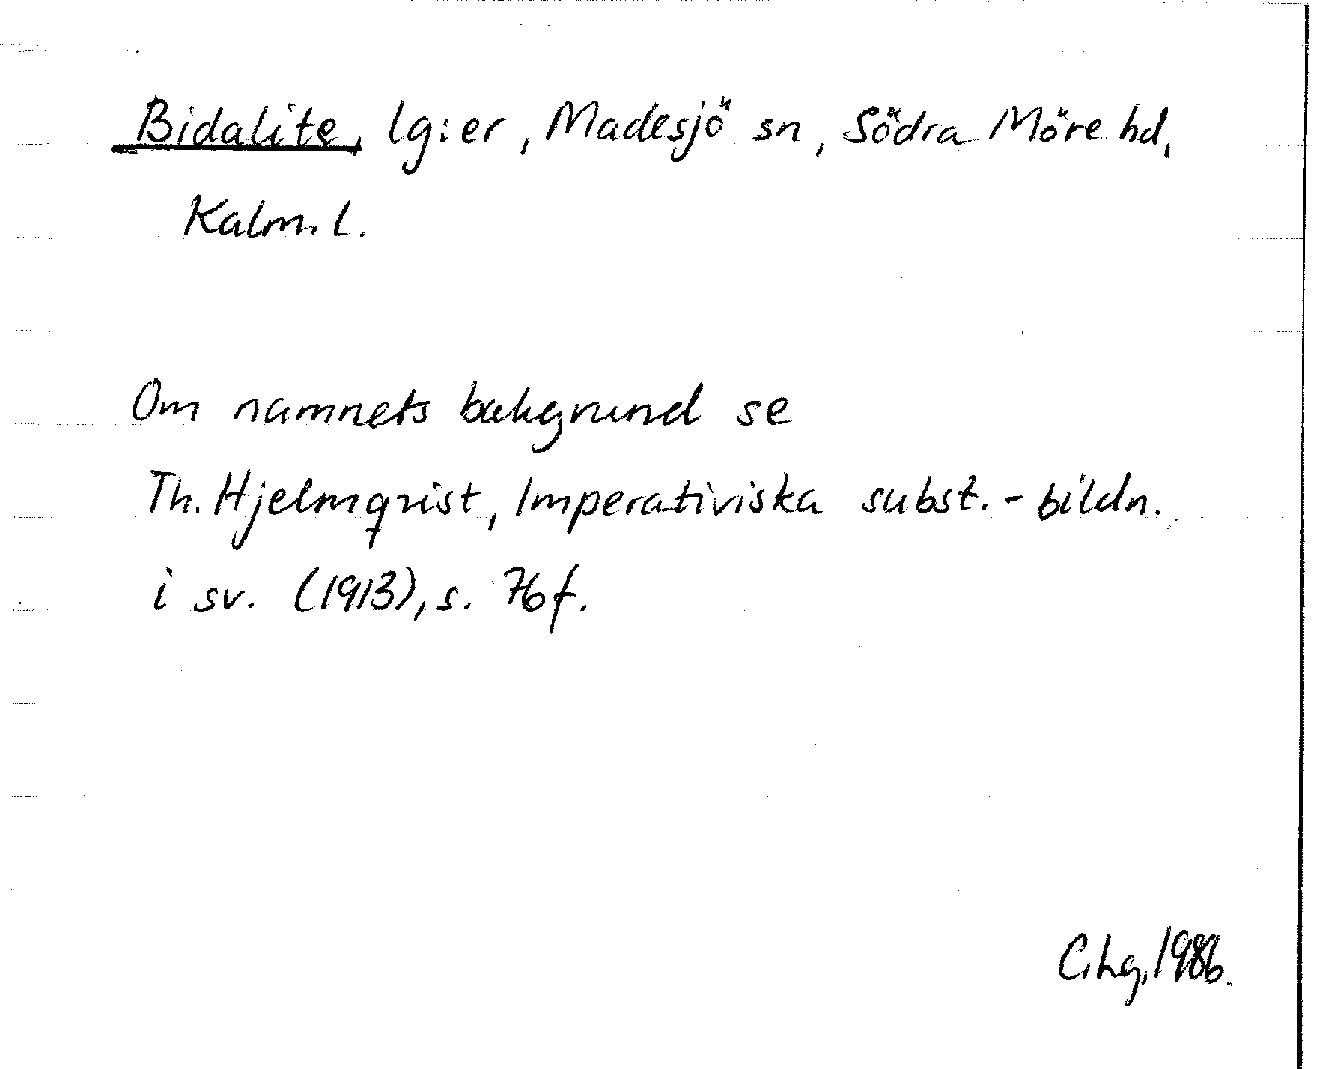 Bidalite, lg:er, Madesjö sn, Södra Möre hd,
Kalm. l.
Om namnets bakgrund se
Th. Hjelmqvist, Imperativiska subst.-bildn.
i sv. (1913), s. 76 f.
C.Lg, 1986.